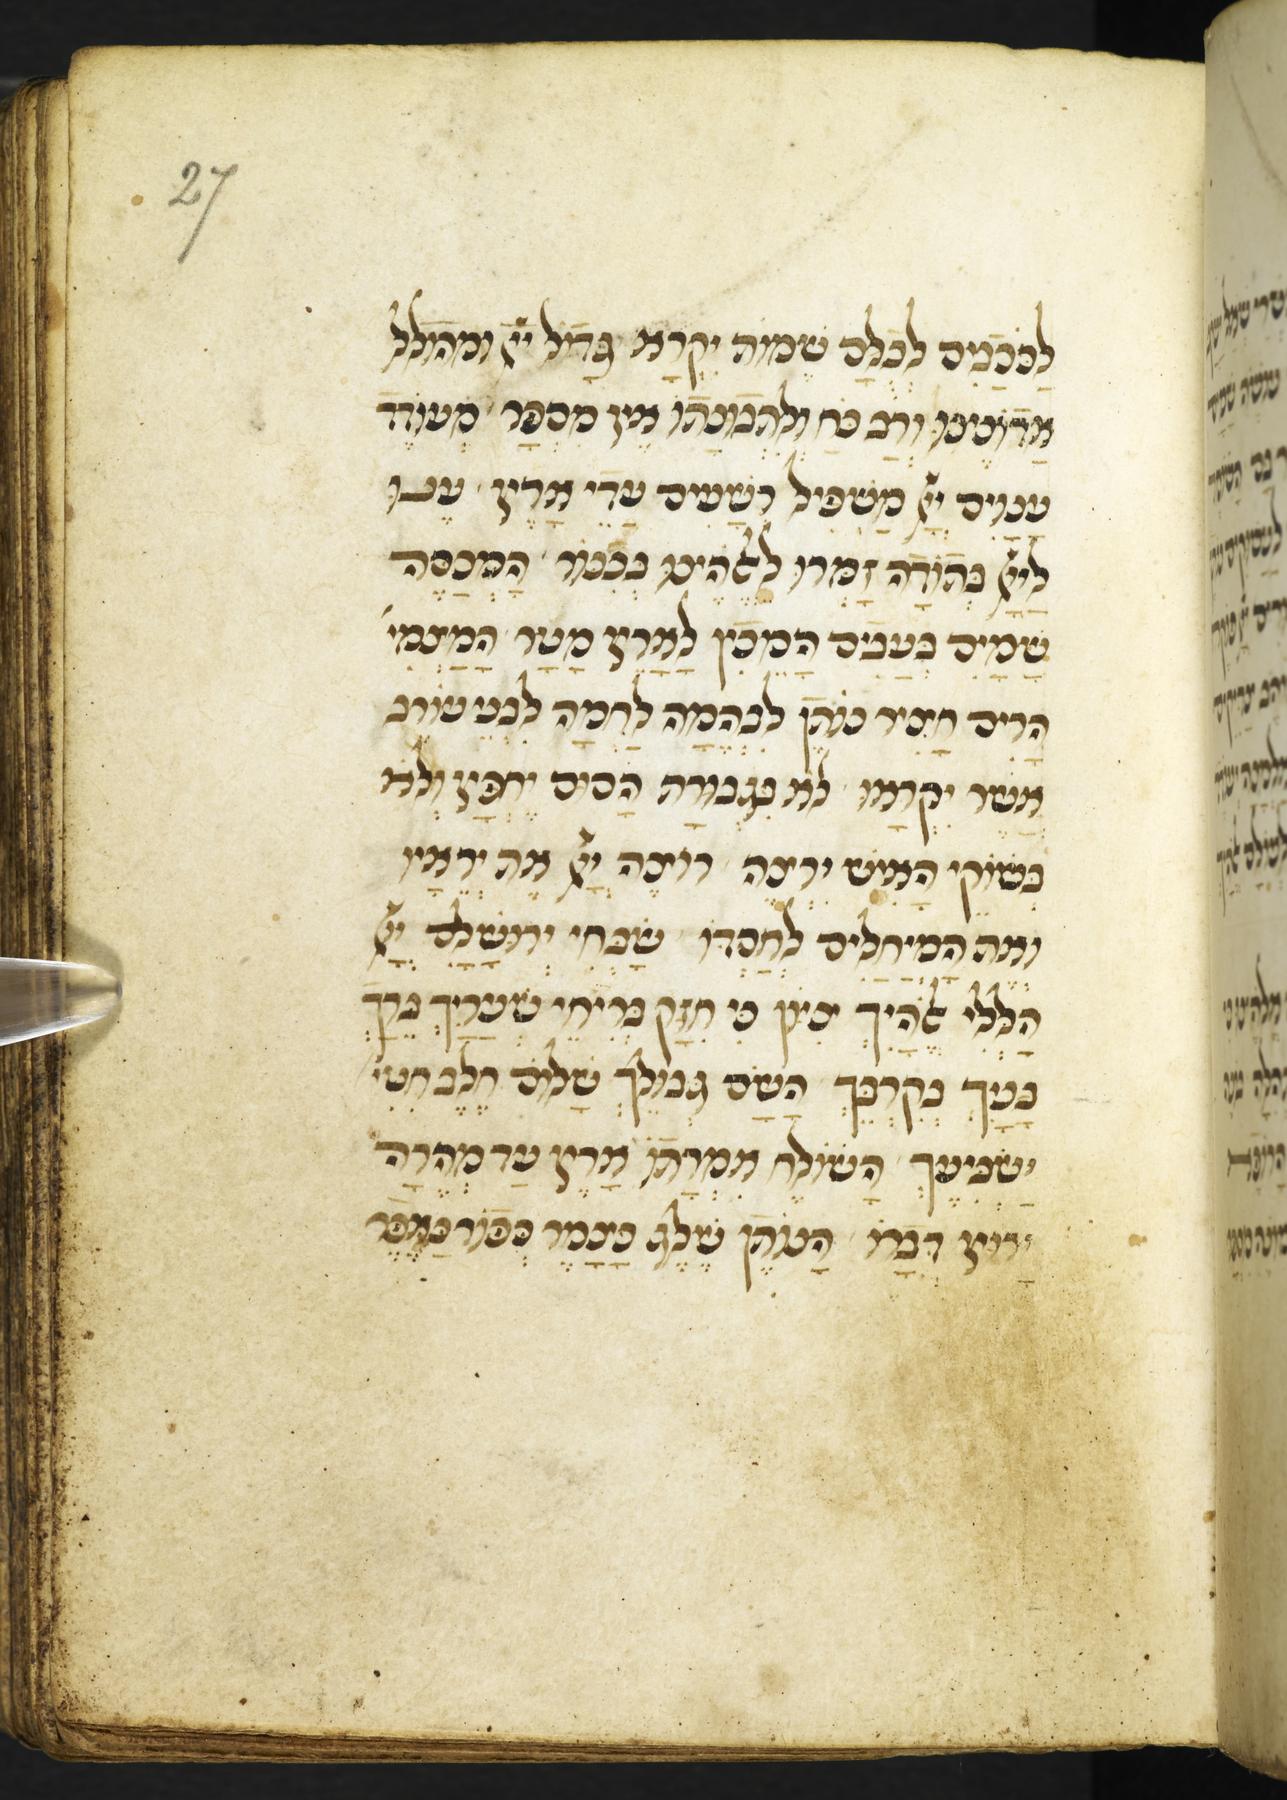 27
לַכֹּכָבִים לְכֻלָּם שֵׁמוֹת יִקְרָא גָּדוֹל יי֗ וּמְהֻלָּל
אֲדוֹנֵינוּ וְרַב כֹּחַ וְלִתְבוּנָתוֹ אֵין מִסְפָּר מְעוֹדֵד
עֲנָוִים יי֗ מַשְׁפִּיל רְשָׁעִים עֲדֵי אָרֶץ עֱנוּ
לַיי֗ בְּתוֹדָה זַמְּרוּ לֵאלֹהֵינוּ בְכִנּוֹר הַמְכַסֶּה
שָׁמַיִם בְּעָבִים הַמֵּכִין לָאָרֶץ מָטָר הַמַּצְמִי׳
הָרִים חָצִיר נוֹתֵן לִבְהֵמָה לַחְמָהּ לִבְנֵי עוֹרֵב
אֲשֶׁר יִקְרָאוּ לֹא בִגְבוּרַת הַסּוּס יֶחְפָּץ וְלֹא
בְּשׁוֹקֵי הָאִישׁ יִרְצֶה רוֹצֶה יי֗ אֶת יְרֵאָיו
וְאֶת הַמְיַחֲלִים לְחַסְדּוֹ שַׁבְּחִי יְרוּשָׁלַם יי֗
הַלְלִי אֱלֹהַיִךְ צִיּוֹן כִּי חִזַּק בְּרִיחֵי שְׁעָרָיִךְ בֵּרַךְ
בָּנַיִךְ בְּקִרְבֵּךְ הַשָּׂם גְּבוּלֵךְ שָׁלוֹם חֵלֶב חִטִּי׳
יַשְׂבִּיעֵךְ הַשּׁוֹלֵחַ אִמְרָתוֹ אָרֶץ עַד מְהֵרָה
יָרוּץ דְּבָרוֹ הַנּוֹתֵן שֶׁלֶג כַּצָּמֶר כְּפוֹר כָּאֵפֶר